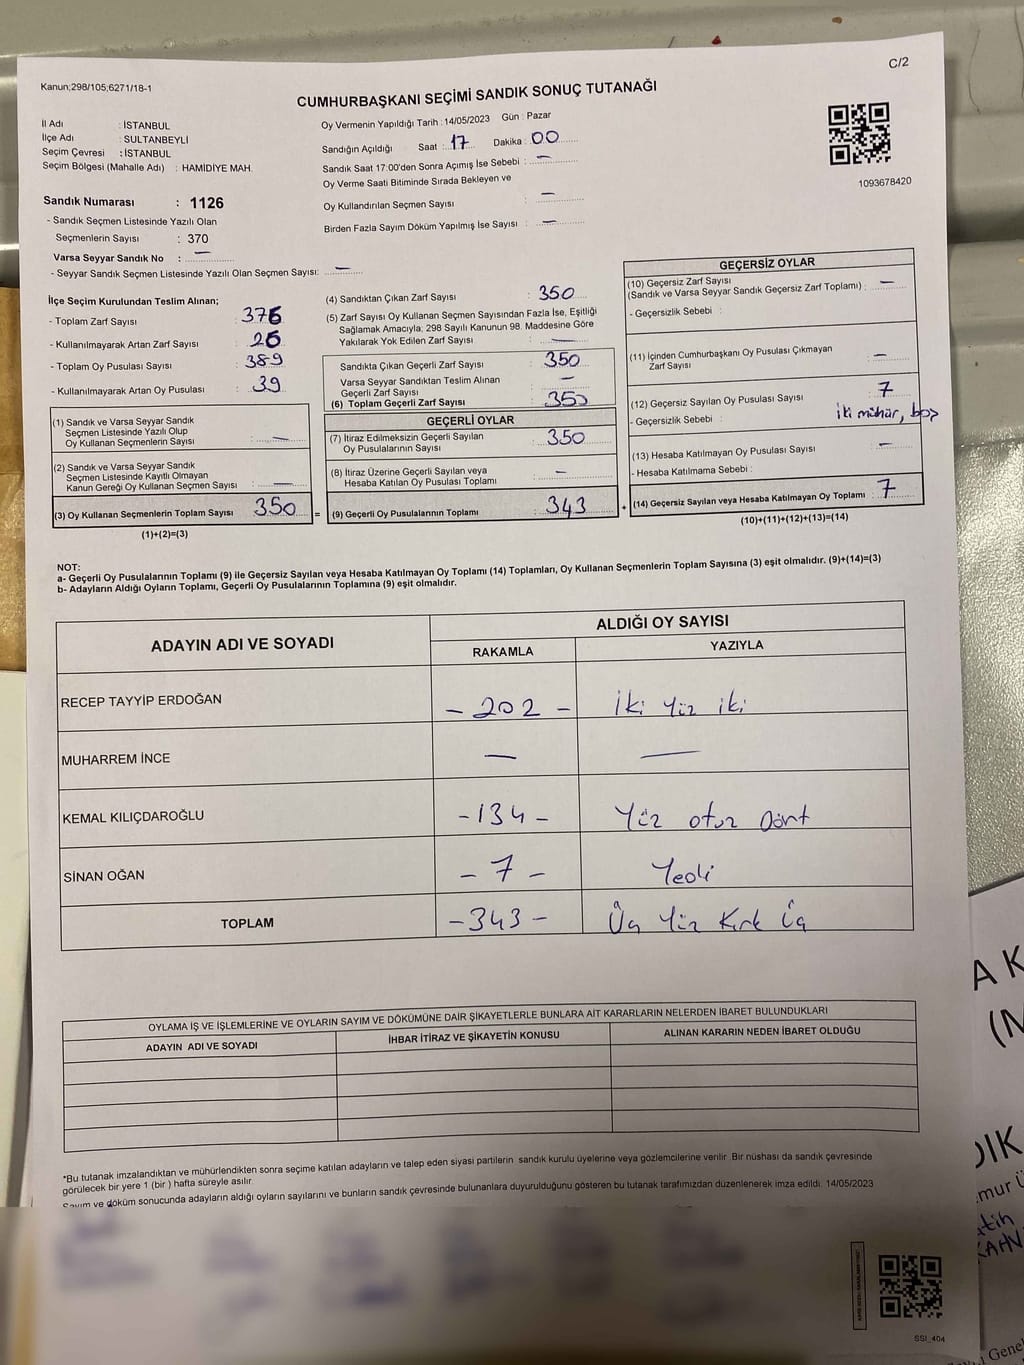 C/2
Kanun;298/105;6271/18-1
CUMHURBAŞKANI SEÇİMİ SANDIK SONUÇ TUTANAĞI
İl Adı : İSTANBUL
İlçe Adı : SULTANBEYLİ
Seçim Çevresi : İSTANBUL
Seçim Bölgesi (Mahalle Adı) : HAMİDİYE MAH.
Sandık Numarası : 1126
- Sandık Seçmen Listesinde Yazılı Olan
Seçmenlerin Sayısı : 370
Varsa Seyyar Sandık No : —
- Seyyar Sandık Seçmen Listesinde Yazılı Olan Seçmen Sayısı: —
Oy Vermenin Yapıldığı Tarih : 14/05/2023 Gün : Pazar
Sandığın Açıldığı Saat : 17 Dakika : 00
Sandık Saat 17:00'den Sonra Açımış İse Sebebi : —
Oy Verme Saati Bitiminde Sırada Bekleyen ve
Oy Kullandırılan Seçmen Sayısı : —
Birden Fazla Sayım Döküm Yapılmış İse Sayısı : —
1093678420
İlçe Seçim Kurulundan Teslim Alınan;
- Toplam Zarf Sayısı : 376
- Kullanılmayarak Artan Zarf Sayısı : 26
- Toplam Oy Pusulası Sayısı : 389
- Kullanılmayarak Artan Oy Pusulası : 39
(1) Sandık ve Varsa Seyyar Sandık
Seçmen Listesinde Yazılı Olup
Oy Kullanan Seçmenlerin Sayısı : —
(2) Sandık ve Varsa Seyyar Sandık
Seçmen Listesinde Kayıtlı Olmayan
Kanun Gereği Oy Kullanan Seçmen Sayısı : —
(3) Oy Kullanan Seçmenlerin Toplam Sayısı 350 =
(1)+(2)=(3)
(4) Sandıktan Çıkan Zarf Sayısı : 350
(5) Zarf Sayısı Oy Kullanan Seçmen Sayısından Fazla İse, Eşitliği
Sağlamak Amacıyla; 298 Sayılı Kanunun 98. Maddesine Göre
Yakılarak Yok Edilen Zarf Sayısı : —
Sandıkta Çıkan Geçerli Zarf Sayısı : 350
Varsa Seyyar Sandıktan Teslim Alınan
Geçerli Zarf Sayısı : —
(6) Toplam Geçerli Zarf Sayısı : 350
GEÇERLİ OYLAR
(7) İtiraz Edilmeksizin Geçerli Sayılan
Oy Pusulalarının Sayısı : 350
(8) İtiraz Üzerine Geçerli Sayılan veya
Hesaba Katılan Oy Pusulası Toplamı : —
(9) Geçerli Oy Pusulalarının Toplamı : 343 +
GEÇERSİZ OYLAR
(10) Geçersiz Zarf Sayısı
(Sandık ve Varsa Seyyar Sandık Geçersiz Zarf Toplamı) : —
- Geçersizlik Sebebi :
(11) İçinden Cumhurbaşkanı Oy Pusulası Çıkmayan
Zarf Sayısı : —
(12) Geçersiz Sayılan Oy Pusulası Sayısı : 7
- Geçersizlik Sebebi : iki mühür, boş
(13) Hesaba Katılmayan Oy Pusulası Sayısı : —
- Hesaba Katılmama Sebebi :
(14) Geçersiz Sayılan veya Hesaba Katılmayan Oy Toplamı : 7
(10)+(11)+(12)+(13)=(14)
NOT:
a- Geçerli Oy Pusulalarının Toplamı (9) ile Geçersiz Sayılan veya Hesaba Katılmayan Oy Toplamı (14) Toplamları, Oy Kullanan Seçmenlerin Toplam Sayısına (3) eşit olmalıdır. (9)+(14)=(3)
b- Adayların Aldığı Oyların Toplamı, Geçerli Oy Pusulalarının Toplamına (9) eşit olmalıdır.
ADAYIN ADI VE SOYADI ALDIĞI OY SAYISI
RAKAMLA YAZIYLA
RECEP TAYYİP ERDOĞAN - 202 - İki Yüz iki
MUHARREM İNCE — —
KEMAL KILIÇDAROĞLU - 134 - Yüz otuz Dört
SİNAN OĞAN - 7 - Yedi
TOPLAM - 343 - Üç Yüz Kırk Üç
OYLAMA İŞ VE İŞLEMLERİNE VE OYLARIN SAYIM VE DÖKÜMÜNE DAİR ŞİKAYETLERLE BUNLARA AİT KARARLARIN NELERDEN İBARET BULUNDUKLARI
ADAYIN ADI VE SOYADI İHBAR İTİRAZ VE ŞİKAYETİN KONUSU ALINAN KARARIN NEDEN İBARET OLDUĞU
*Bu tutanak imzalandıktan ve mühürlendikten sonra seçime katılan adayların ve talep eden siyasi partilerin sandık kurulu üyelerine veya gözlemcilerine verilir. Bir nüshası da sandık çevresinde
görülecek bir yere 1 (bir ) hafta süreyle asılır.
Sayım ve döküm sonucunda adayların aldığı oyların sayılarını ve bunların sandık çevresinde bulunanlara duyurulduğunu gösteren bu tutanak tarafımızdan düzenlenerek imza edildi. 14/05/2023
SSI_404
A K